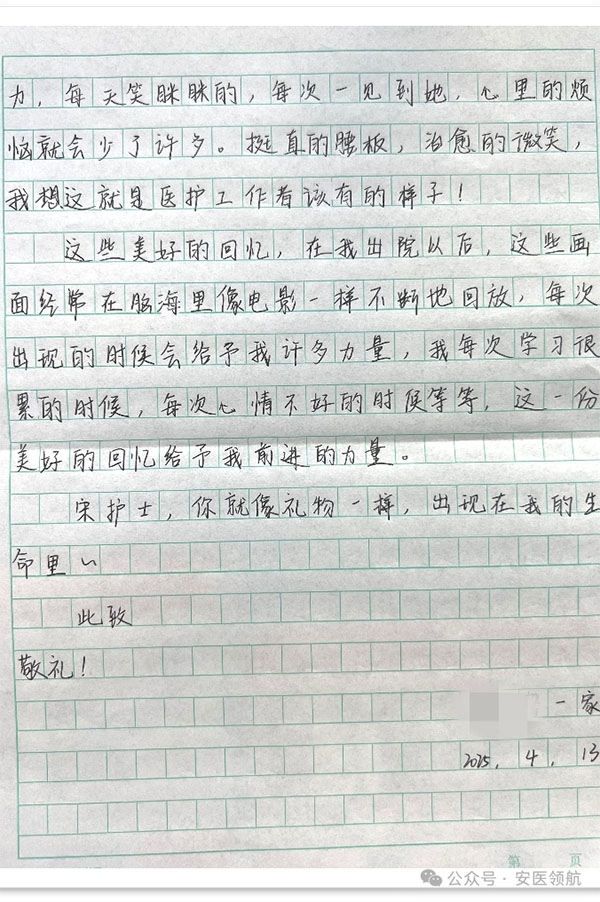 力，每天笑眯眯的，每次一见到她，心里的烦
恼就会少了许多。挺直的腰板，治愈的微笑，
我想这就是医护工作者该有的样子！
这些美好的回忆，在我出院以后，这些画
面经常在脑海里像电影一样不断地回放，每次
出现的时候会给予我许多力量，我每次学习很
累的时候，每次心情不好的时候等等，这一份
美好的回忆给予我前进的力量。
宋护士，你就像礼物一样，出现在我的生
命里~
此致
敬礼！
一家
2025.4.13
第 页
公众号·安医领航